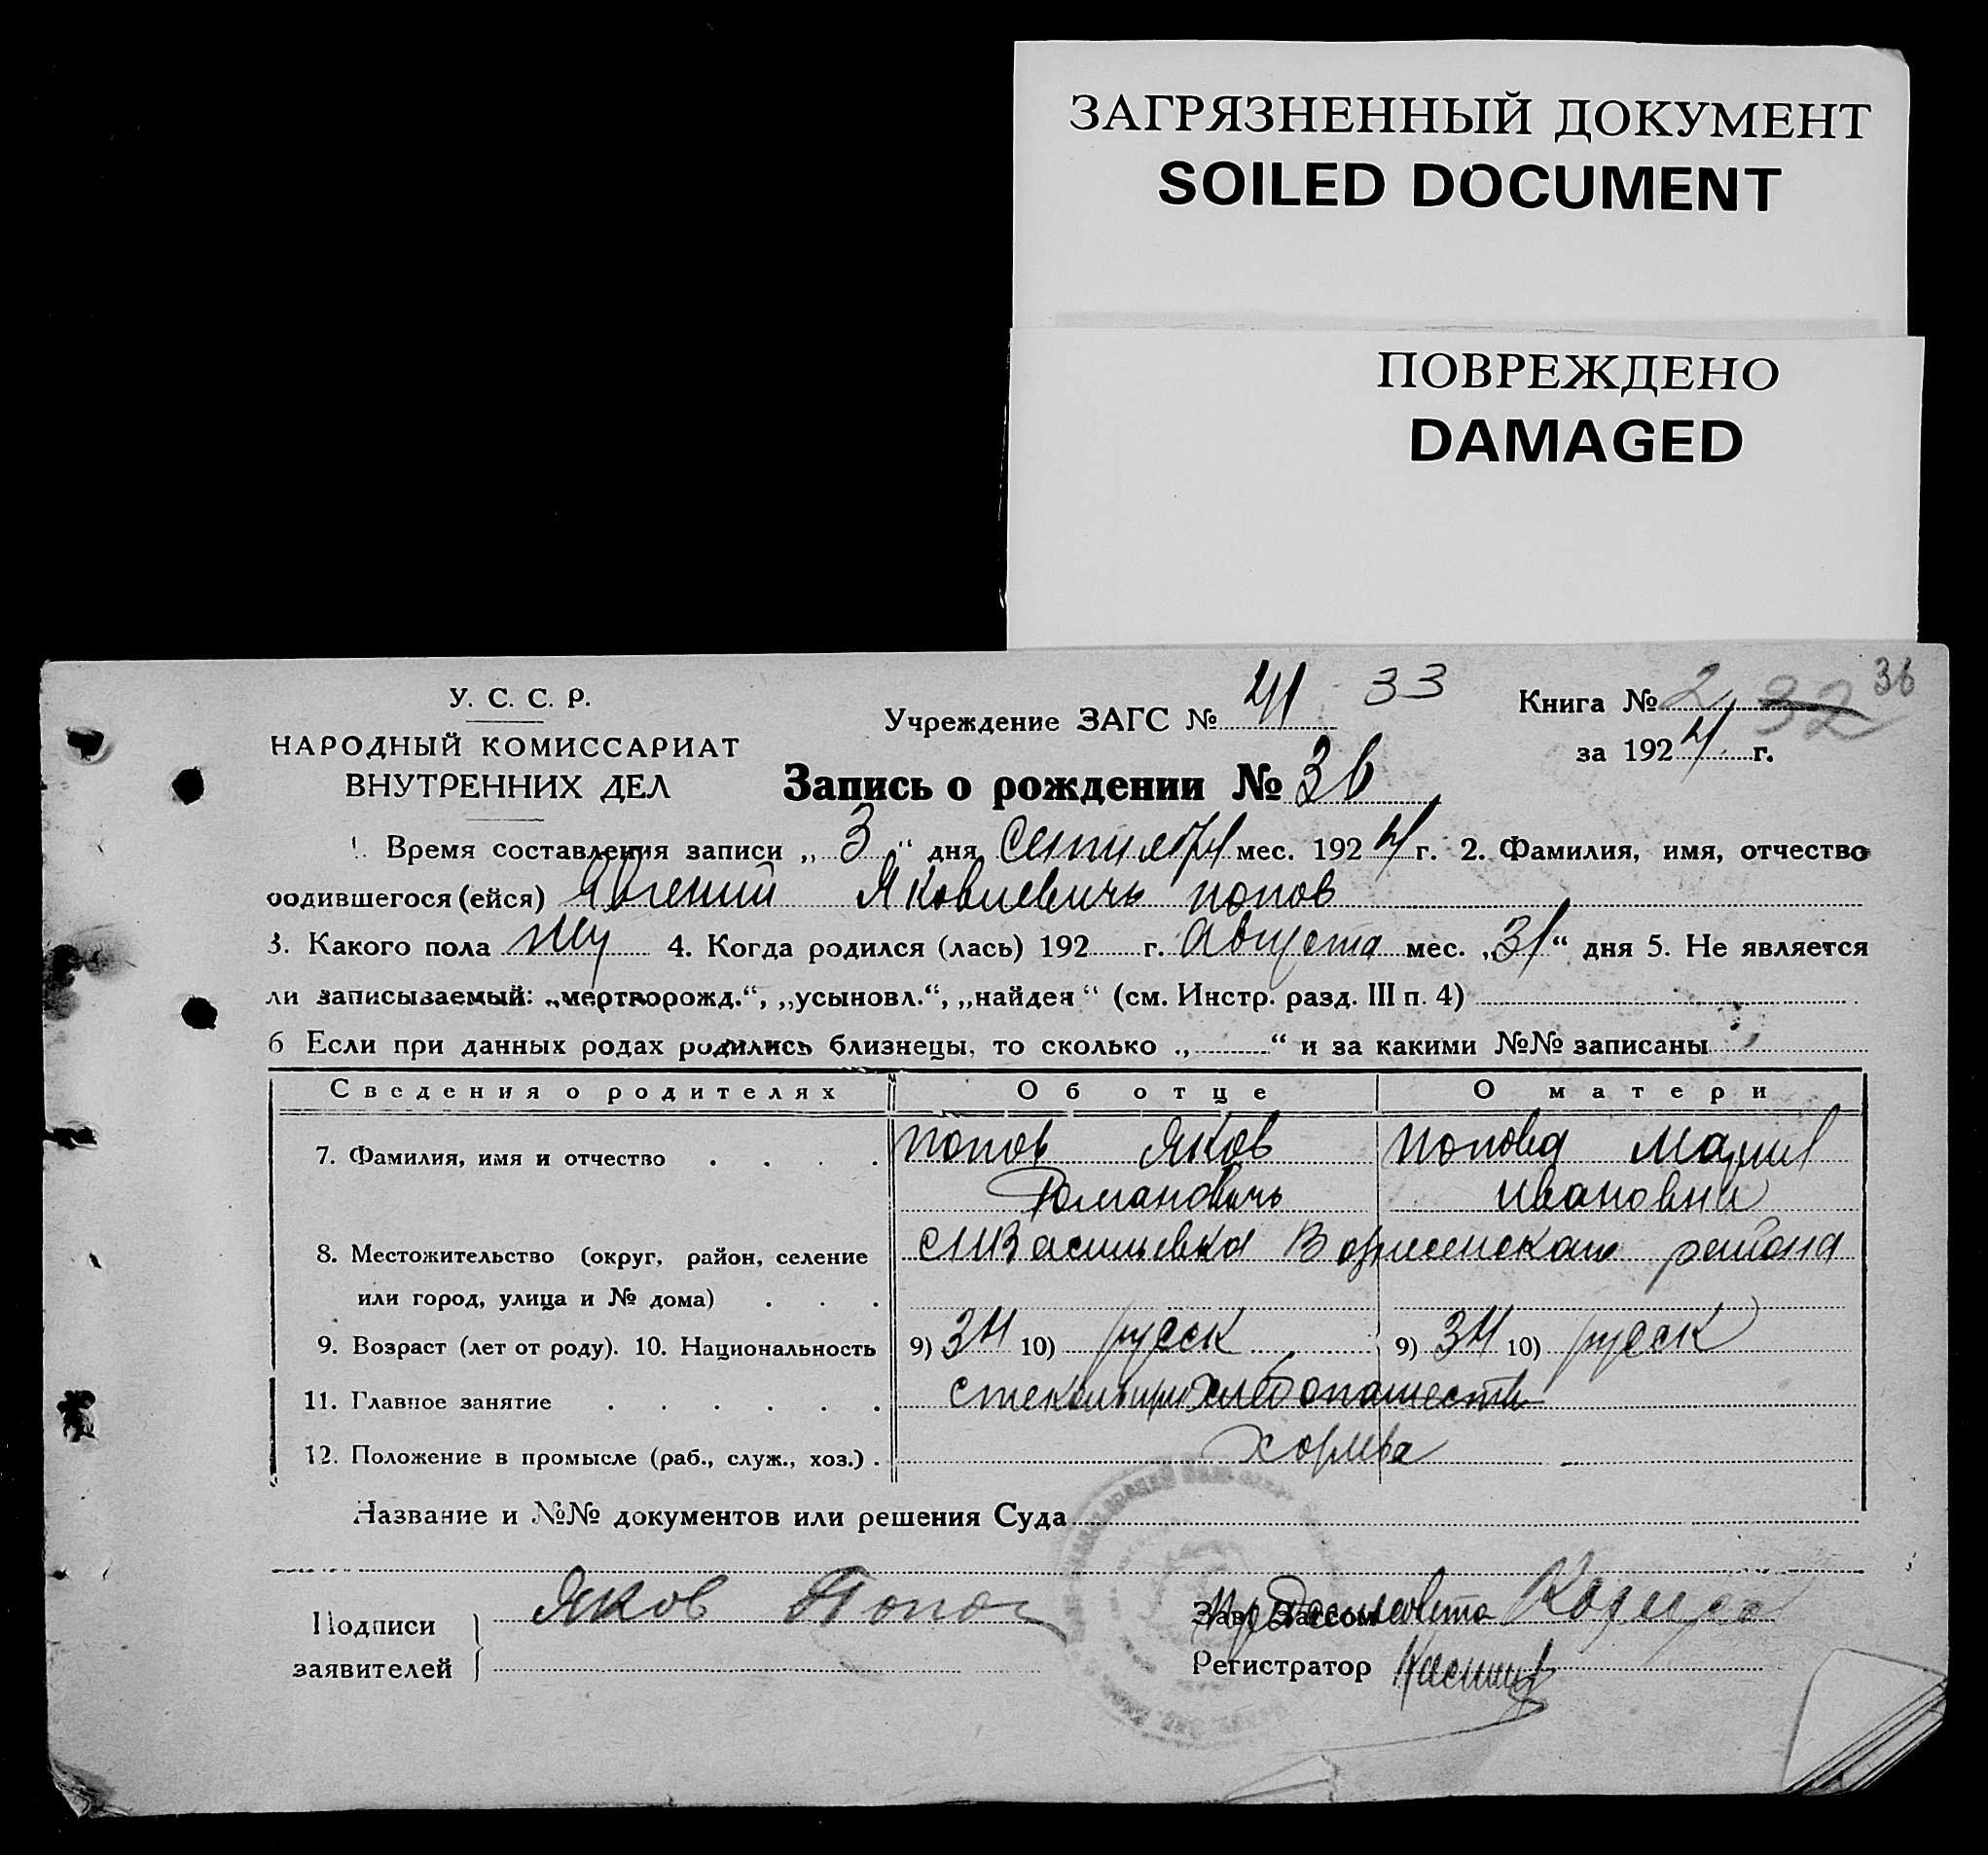 ЗАГРЯЗНЕННЫЙ ДОКУМЕНТ
SOILED DOCUMENT
ПОВРЕЖДЕНО
DAMAGED
У. С. С. Р.
НАРОДНЫЙ КОМИССАРИАТ
ВНУТРЕННИХ ДЕЛ
Учреждение ЗАГС № 33
Книга № 2 32 36
за 1924 г.
Запись о рождении № 36
1. Время составления записи „ 3 “ дня сентября мес. 1924 г. 2. Фамилия, имя, отчество
родившегося (ейся) Явгений Яковлевичь попов
3. Какого пола му 4. Когда родился (лась) 192 г. Августа мес. „31“ дня 5. Не является
ли записываемый: „мертворожд.“, „усыновл.“, „найден“ (см. Инстр. разд. III п. 4)
6 Если при данных родах родились близнецы, то сколько „ “ и за какими №№ записаны
Сведения о родителях Об отце О матери
7. Фамилия, имя и отчество попов Яков попова Мария
Романовичь ивановна
8. Местожительство (округ, район, селение Васильевка района
или город, улица и № дома)
9. Возраст (лет от роду). 10. Национальность 9) 34 10) русск 9) 34 10) русск
11. Главное занятие хлебопашеств
12. Положение в промысле (раб., служ., хоз.)
Название и №№ документов или решения Суда
Подписи Яков Попов Зав. Загсом
заявителей Регистратор